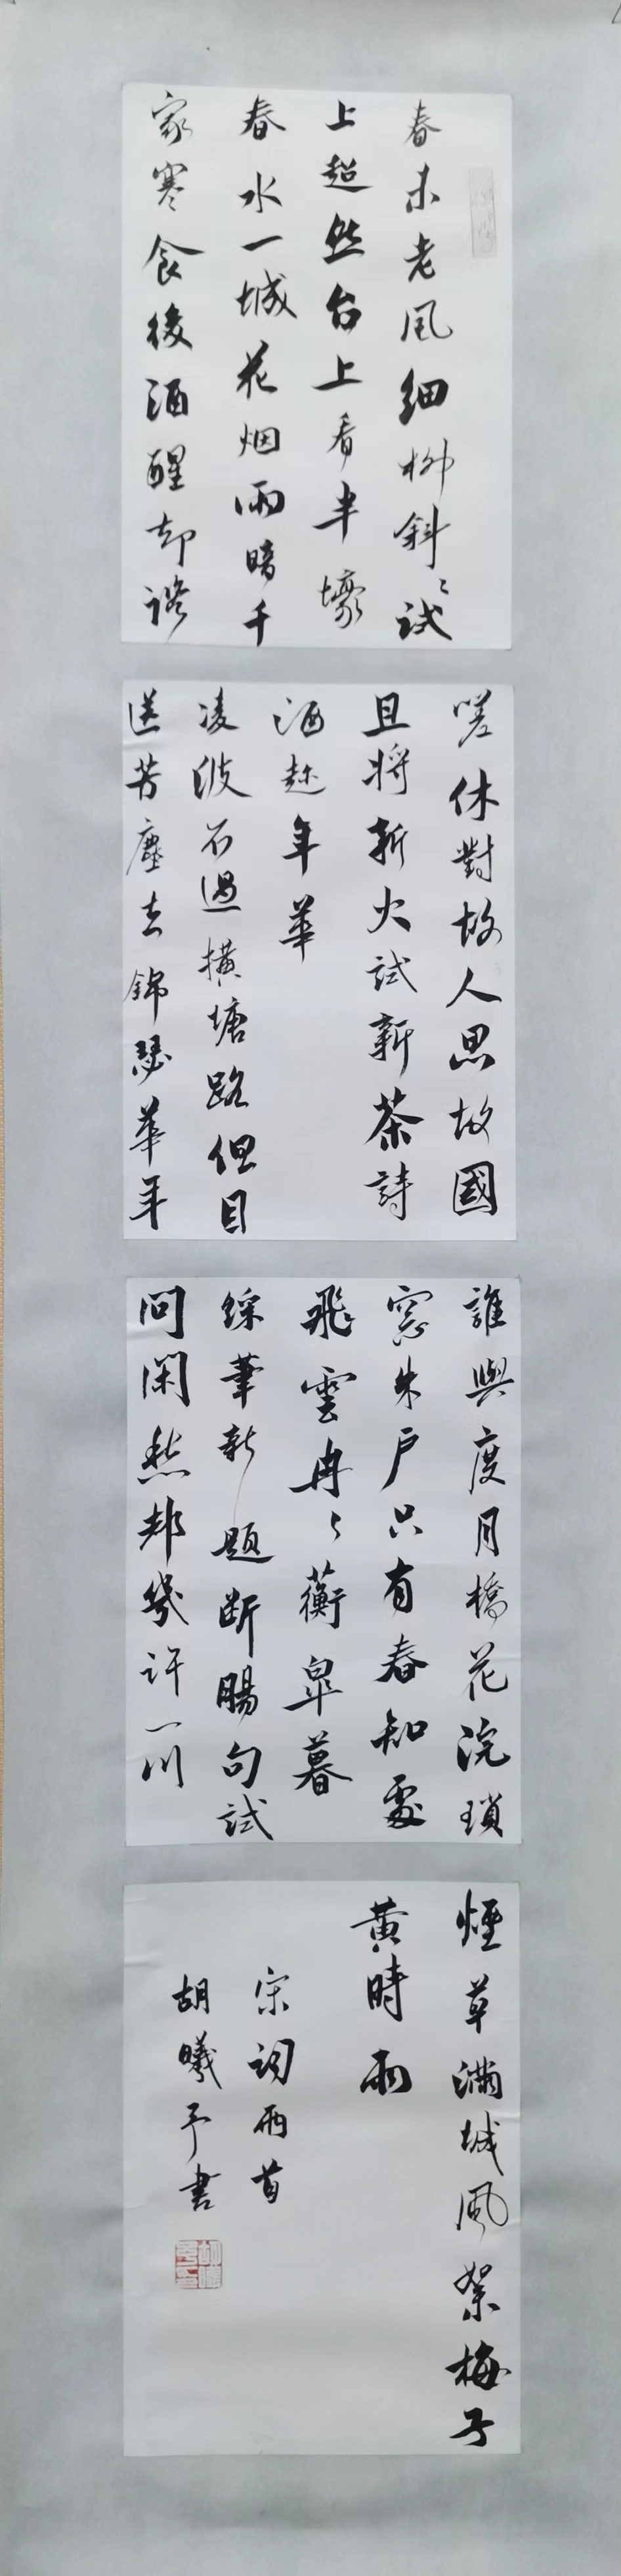 春未老風細柳斜〻試
上超然台上看半壕
春水一城花烟雨暗千
家寒食後酒醒却諮
嗟休對故人思故國
且將新火試新茶詩
酒趂年華
凌波不過橫塘路但目
送芳塵去錦瑟華年
誰與度月橋花浣瑣
窓朱户只有春知處
飛雲冉〻蘅皐暮
綵筆新題断腸句試
問閑愁都幾許一川
煙草滿城風絮梅子
黃時雨
宋詞两首
胡曦予書